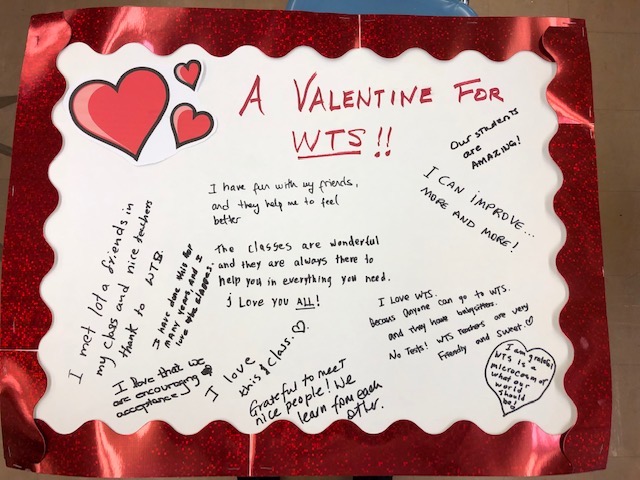 A VALENTINE FOR
WTS!!
OUR STUDENTS
are
AMAZING!
I CAN IMPROVE...
MORE AND MORE!
I have fun with my friends,
and they help me to feel
better
The classes are wonderful
and they are always there to
help you in everything you need.
I Love you ALL!
I met lot a friends in
my class and nice teachers
thank to WTS.
I have done this for
many years, and I
love the classes.
I love that we
are encouraging
acceptance
I love
this class.
Grateful to meet
nice people! We
learn from each
other.
I Love WTS.
Becaus Anyone can go to WTS.
and they have babysitters.
No Tests! WTS teachers are very
Friendly and Sweet
I am grateful
WTS is a
microcosm of
what our
world
should
be!